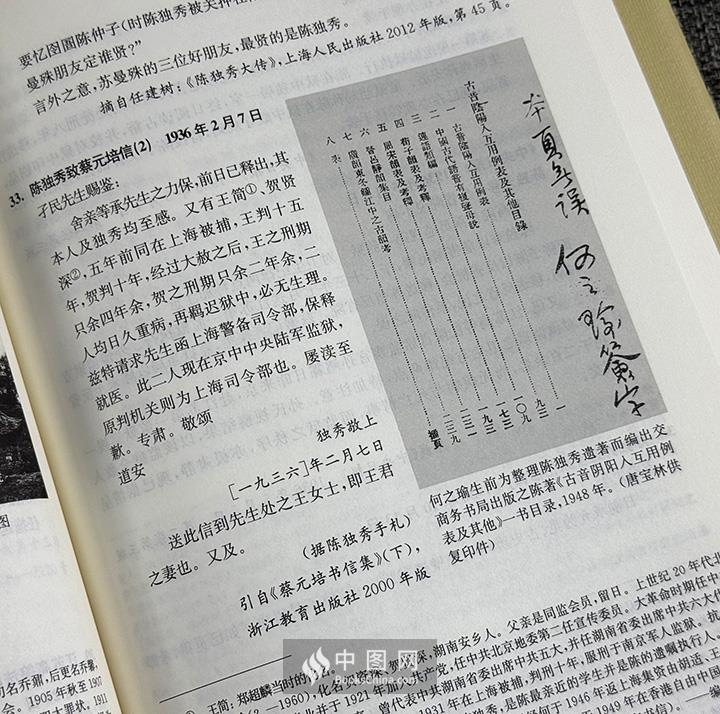 要忆囹圄陈仲子(时陈独秀被关押在
曼殊朋友定谁贤?”
言外之意,苏曼殊的三位好朋友,最贤的是陈独秀。
摘自任建树:《陈独秀大传》,上海人民出版社2012年版,第45页。
33. 陈独秀致蔡元培信(2) 1936年2月7日
孑民先生赐鉴:
舍亲等承先生之力保,前日已释出,其
本人及独秀均至感。又有王简①、贺贤
深②,五年前同在上海被捕,王判十五
年,贺判十年,经过大赦之后,王之刑期
只余四年余,贺之刑期只余二年余,二
人均日久重病,再羁迟狱中,必无生理。
兹特请求先生函上海警备司令部,保释
就医。此二人现在京中中央陆军监狱,
原判机关则为上海司令部也。屡渎至
歉。专肃。敬颂
道安
独秀敬上
[一九三六]年二月七日
送此信到先生处之王女士,即王君
之妻也。又及。
(据陈独秀手札)
引自《蔡元培书信集》(下),
浙江教育出版社2000年版
本頁無误 何之瑜簽字
古音陰陽入互用例表及其他目錄
一 古音陰陽入互用例表 一
二 中國古代語音有複聲母說 九三
三 連語類編 一〇九
四 荀子韻表及考釋 一七三
五 屈宋韻表及考釋 一九三
六 晉呂靜韻集目 二三九
七 廣韻東冬鍾江中之古韻考
八 表 補頁
何之瑜生前为整理陈独秀遗著而编出交
商务书局出版之陈著《古音阴阳人互用例
表及其他》一书目录,1948年。(唐宝林供
复印件)
图
司名乔鼐,后更名乔馨,
会。1905年秋至1907
四大罪状,1911
① 王简:郑超麟当时的
湖南安乡人。父亲是同监会员,留日。上世纪20年代北
任中共北京地委第二任宣传委员。大革命时期任中
曾代表中共湖南省委出席中共五大,并任湖南省委出席中共六大代
1931年在上海被捕,判刑十年,服刑于南京军人监狱。抗
是陈最亲近的学生并是陈的遗嘱执行人。
何于1946年返上海集资由胡适、王
年在香港自由中国
中图网
BooksChina.com